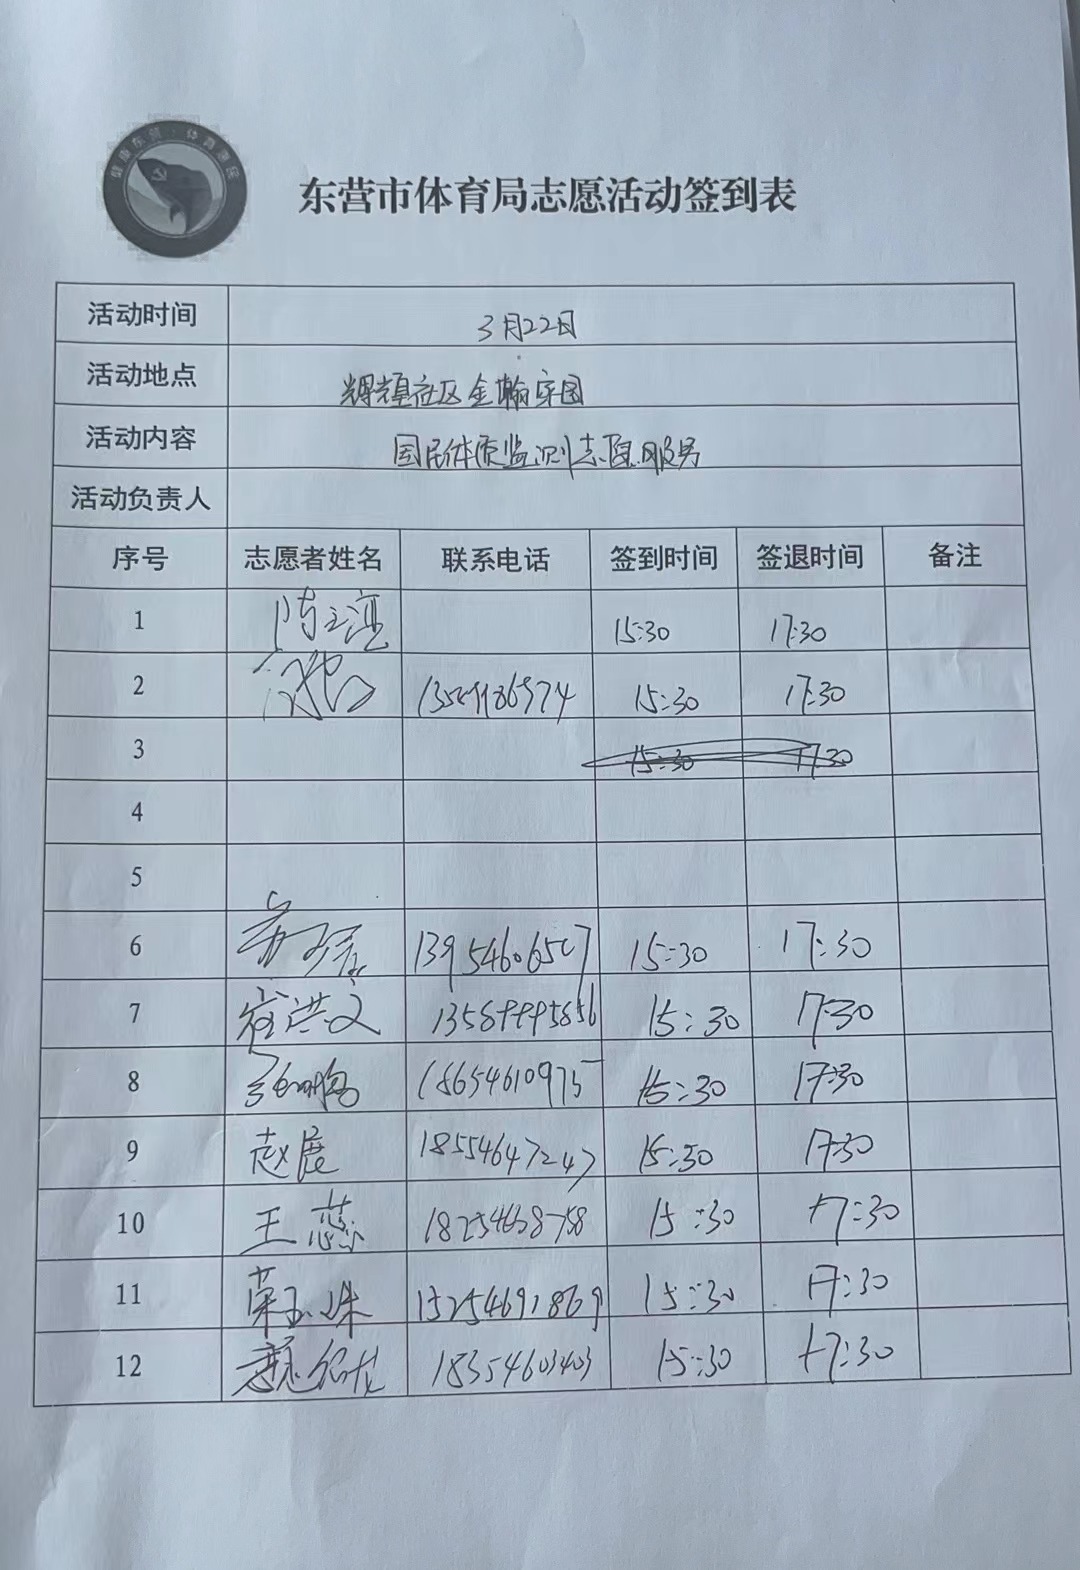 健康东营·体育惠民
东营市体育局志愿活动签到表
活动时间 3月22日
活动地点 辉煌社区金瀚宇园
活动内容 国民体质监测志愿服务
活动负责人
序号 志愿者姓名 联系电话 签到时间 签退时间 备注
1 15:30 17:30
2 15:30 17:30
3 15:30 17:30
4
5
6 13954606507 15:30 17:30
7 崔洪文 15:30 17:30
8 18654610975 15:30 17:30
9 赵展 18554647247 15:30 17:30
10 王蕊 18254638758 15:30 17:30
11 荣玉珠 15254691869 15:30 17:30
12 18354603403 15:30 17:30